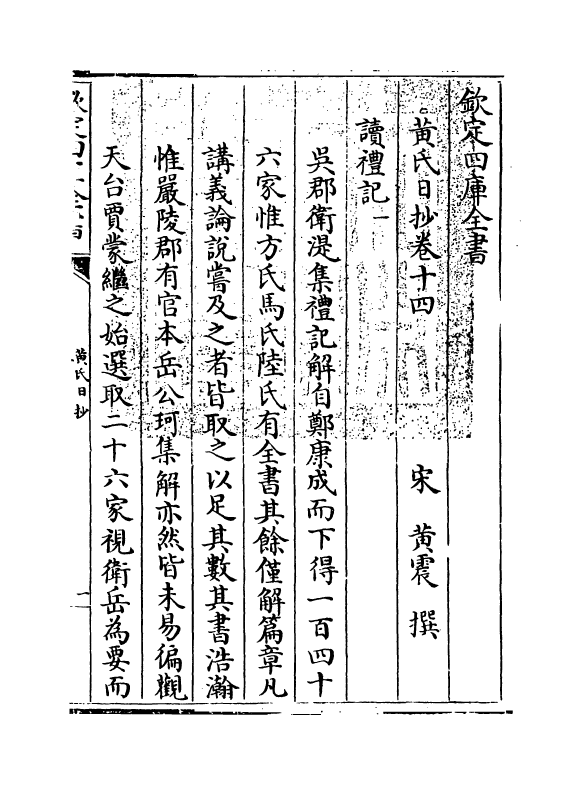 欽定四庫全書
黃氏日抄卷十四
宋 黃震 撰
讀禮記一
吳郡衛湜集禮記解自鄭康成而下得一百四十
六家惟方氏馬氏陸氏有全書其餘僅解篇章凡
講義論說嘗及之者皆取之以足其數其書浩瀚
惟嚴陵郡有官本岳公珂集解亦然皆未易徧觀
天台賈蒙繼之始選取二十六家視衛岳為要而
黃氏日抄
一
欽定四庫全書